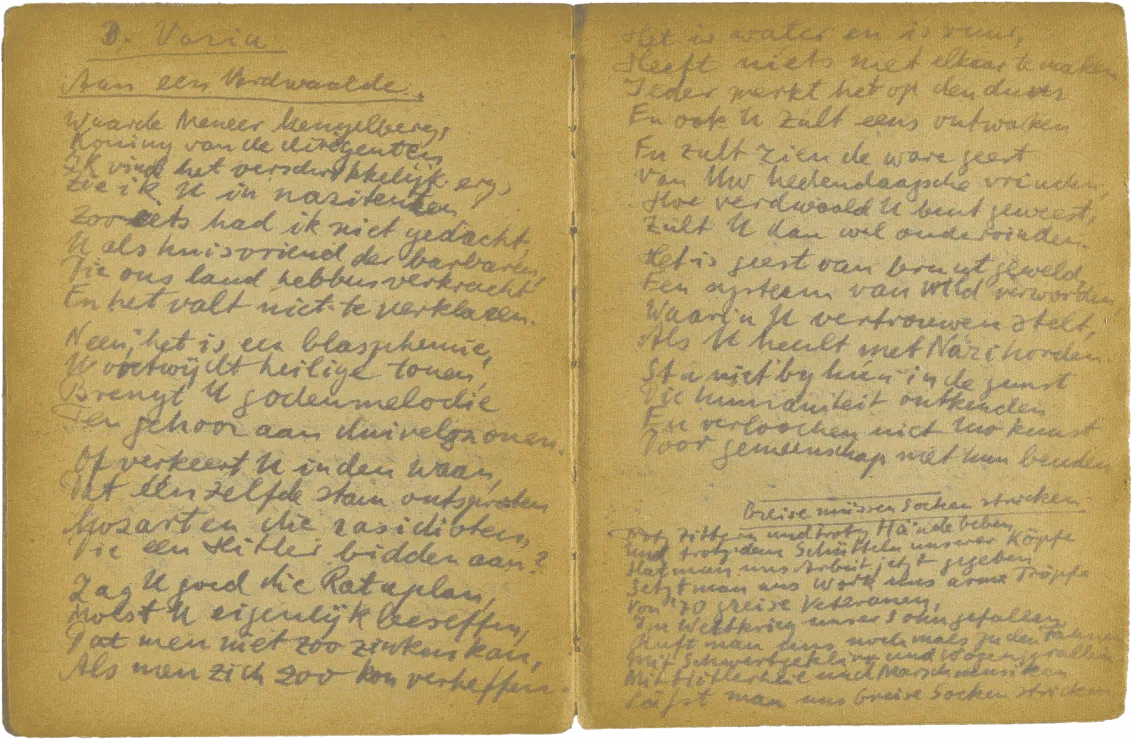 B. Varia
Aan een Verdwaalde.
Waarde Meneer Mengelberg,
Koning van de dirigenten
Ik vind het verschrikkelijk erg,
Zie ik U in nazitenten
Zoo iets had ik niet gedacht,
U als huisvriend der barbaren,
Die ons land hebben verkracht
En het valt niet te verklaren.
Neen, het is een blasphemie,
U ontwijdt heilige tonen,
Brengt U godenmelodie
Ten gehoor aan duivelszonen.
Of verkeert U in den waan,
Dat een zelfde stam ontsproten
Mozart en die
Die een Hitler bidden aan?
Zag U goed die Rataplan,
Moest U eigenlijk beseffen,
Dat men niet zoo zinken kan,
Als men zich zoo kon verheffen.
Het is water en is vuur,
Heeft niets met elkaar te maken
Ieder merkt het op den duur
En ook U zult eens ontwaken
En zult zien de ware geest
van Uw hedendaagsche vrinden,
Hoe verdwaald U bent geweest,
Zult U dan wel ondervinden.
Het is geest van bruut geweld,
Een systeem van wild verworden
Waarin U vertrouwen stelt,
Als U heult met Nazihorden.
Sta niet by hun in de gunst
Die humaniteit ontkenden
En verloochen niet Uw kunst
Door gemeenschap met hun benden
Greise müssen Socken stricken
Trotz Zittern und trotz Hände beben
Und trotz dem Schütteln unsrer Köpfe
Hat man uns Arbeit jetzt gegeben
Setzt man ans Werk uns arme Tröpfe
Von 70 greise Veteranen,
Im Weltkrieg unser Sohn gefallen,
Ruft man uns nochmals zu den Fahnen
Mit Schwertgeklirr und Wogenprallen
Mit Hitlerheil und Marschmusiken
Läßt man uns Greise Socken stricken